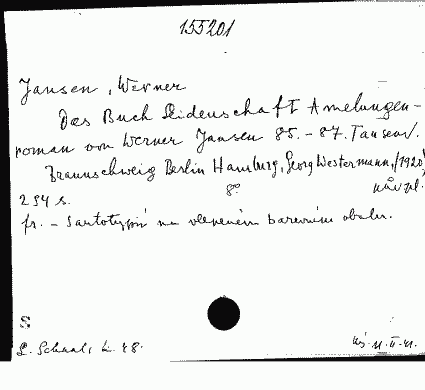 155201
Jansen, Werner
Das Buch Leidenschaft Amelungen-
roman von Werner Jansen 85.-87. Tausend.
Braunschweig Berlin Hamburg, Georg Westermann, /1920/
8° nův. pl.
294 s.
fr. - s autotypií na vlepeném barevném obalu.
S
L. Schnal, L. 48. 11.-II-41.